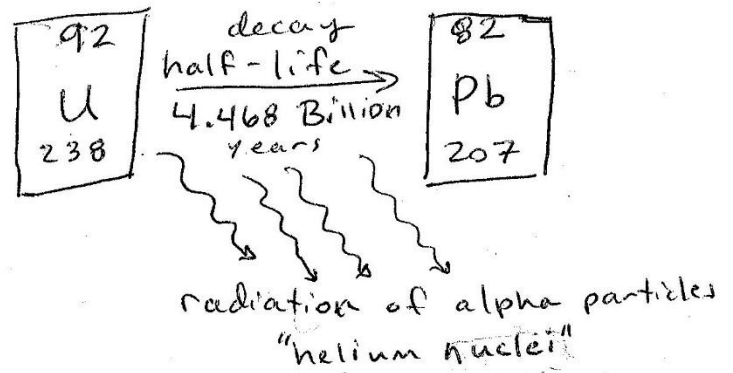 92
U
238
decay
half-life
4.468 Billion
years
82
Pb
207
radiation of alpha particles
"helium nuclei"